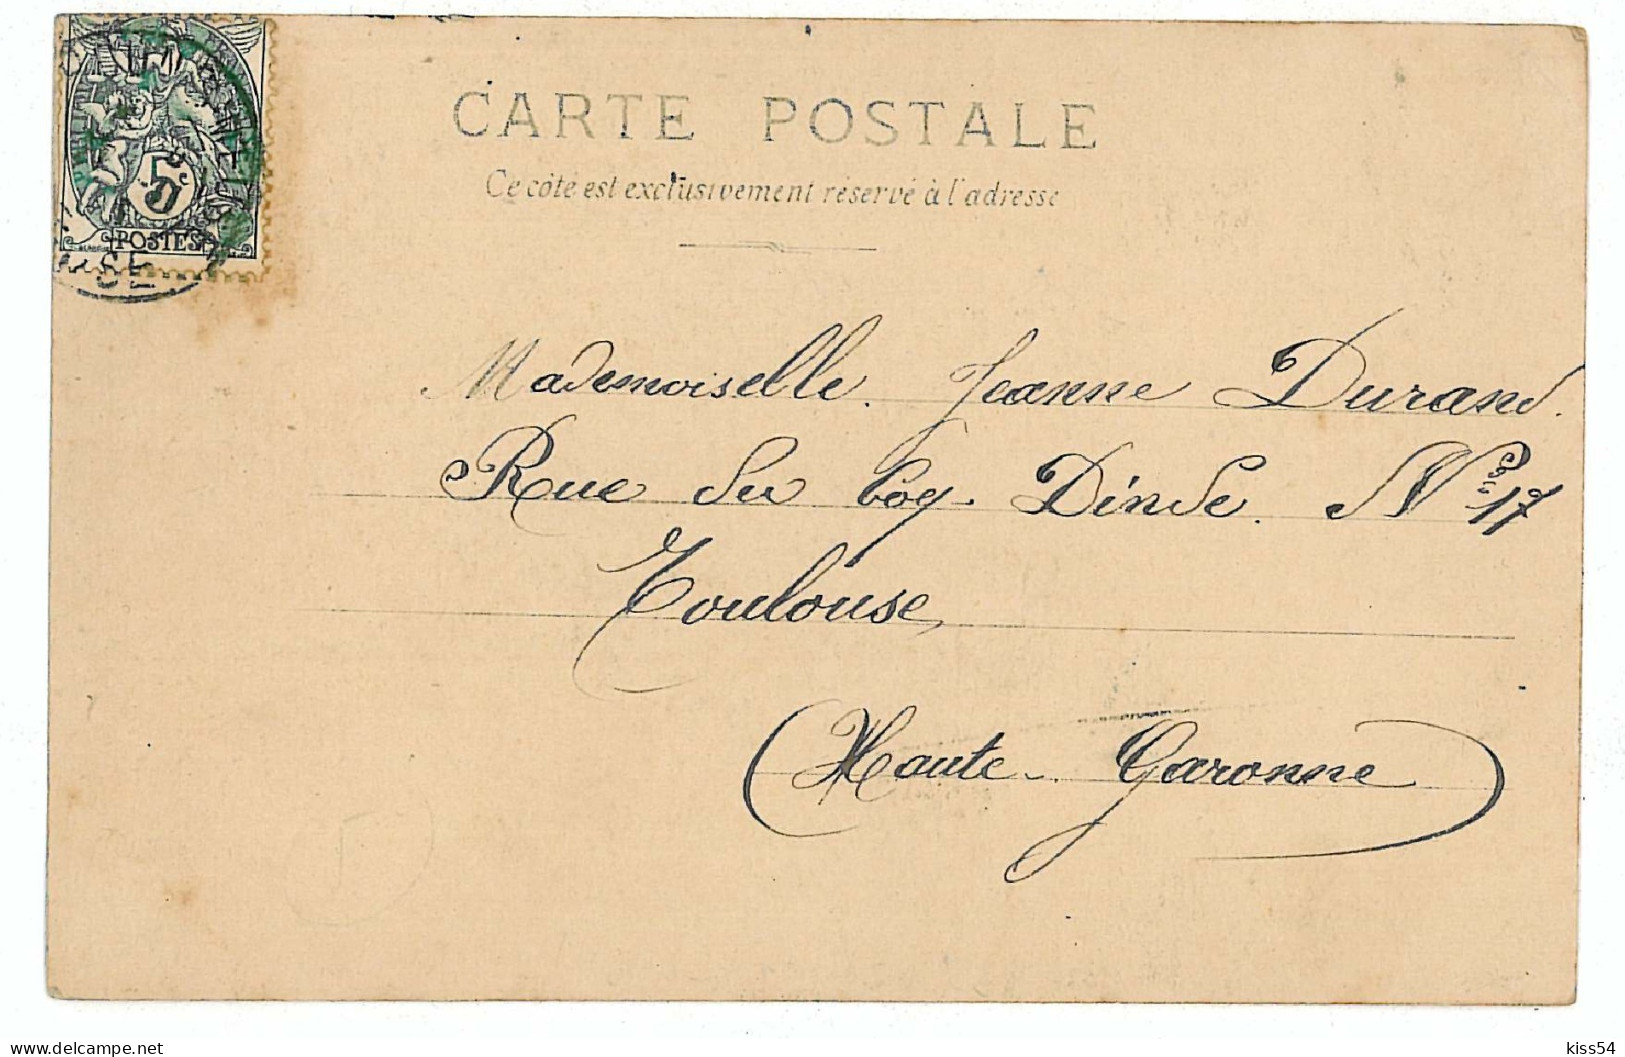 CARTE POSTALE
Ce côté est exclusivement réservé à l'adresse
5c
POSTES
Mademoiselle. Jeanne Durand.
Rue du Coq. Dinde. N 17
Toulouse
(Haute-Garonne)
kiss54